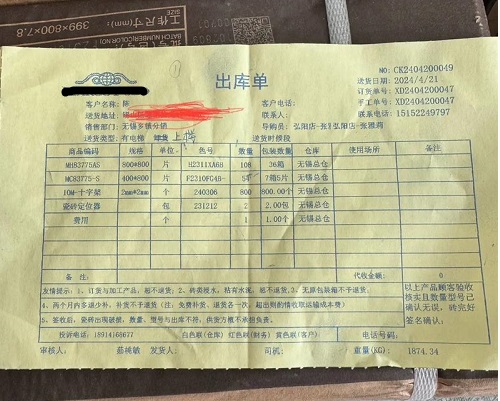 工作尺寸(mm):
399×800×7.8
出库单
NO:CK2404200049
客户名称:陈
客户电话:
送货日期:2024/4/21
送货地址:
联系人:
订货单号:XD2404200047
销售部门:无锡乡镇分销
导购员:弘阳店-张 弘阳店-张雅莉
手工单号:XD2404200047
送货类型:有电梯 上楼
送货时接段
联系电话:15152249797
商品编码 规格 单位 色号 数量 包装数量 仓库 使用场所 备注
MH83775AS 800*800 片 H2311XA6B 108 36箱 无锡总仓
MC83775-S 400*800 片 F2310FG4B- 54 7箱5片 无锡总仓
10M-十字架 2mm*2mm 个 240306 800 800.00个 无锡总仓
瓷砖定位器 包 231212 2 2.00包 无锡总仓
费用 个 1 1.00个 无锡总仓
备 注: 代收金额: 0
友情提示:1、订货与加工产品,概不退货;2、砖类浸水,粘有水泥,概不退货,3、无原包装箱不予退货。
4、两个月内多退少补,补货不予退货(注:免费补货、退货各一次,超出则酌情收取运输成本费)
5、签收后,瓷砖出现破损,数量,型号与出库不符,供货方概不承担负责。
以上产品顾客验收
核实且数量型号已
确认无误,砖完好
签名确认:
投诉电话:18914168677 白色联(仓库) 红色联(财务) 黄色联(客户) 电话号码:
审核人: 蔡桃敏 发货人: 司机: 重量(KG): 1874.34